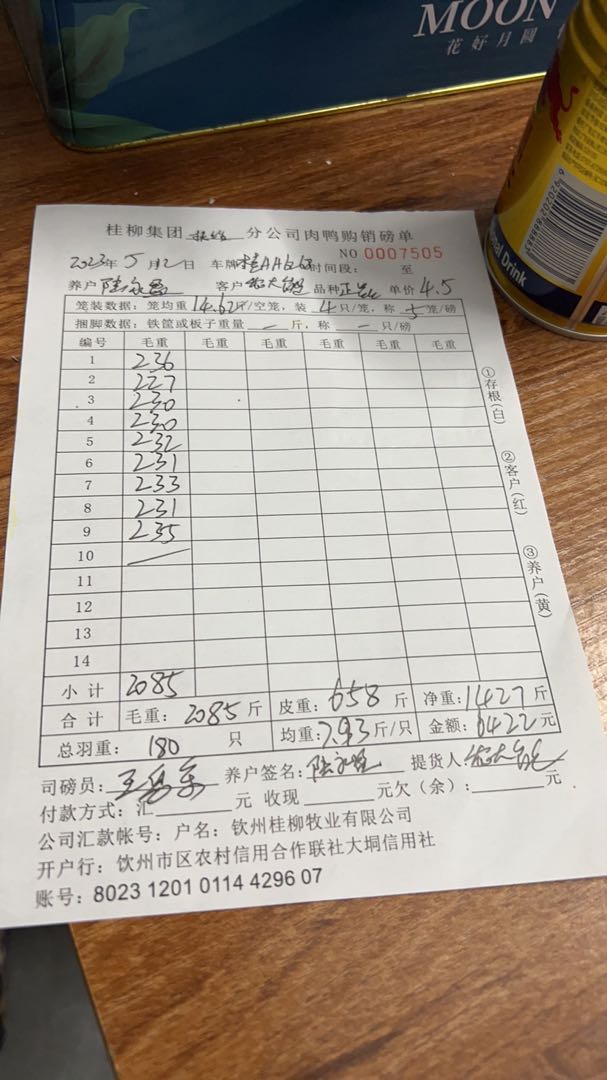 MOON
花好月圆
nal Drink
桂柳集团 分公司肉鸭购销磅单
NO 0007505
2023年5月12日 车牌 时间段： 至
养户 客户 品种 单价 4.5
笼装数据：笼均重14.62斤/空笼，装4只/笼，称5笼/磅
捆脚数据：铁筐或板子重量 — 斤，称 — 只/磅
编号 毛重 毛重 毛重 毛重 毛重 毛重
1 236
2 227
3 230
4 230
5 232
6 231
7 233
8 231
9 235
10
11
12
13
14
小计 2085
合计 毛重：2085斤 皮重：658斤 净重：1427斤
总羽重：180 只 均重：7.93斤/只 金额：6422元
①存根(白) ②客户(红) ③养户(黄)
司磅员： 养户签名： 提货人
付款方式：汇 元 收现 元欠（余）： 元
公司汇款帐号：户名：钦州桂柳牧业有限公司
开户行：钦州市区农村信用合作联社大垌信用社
账号：8023 1201 0114 4296 07